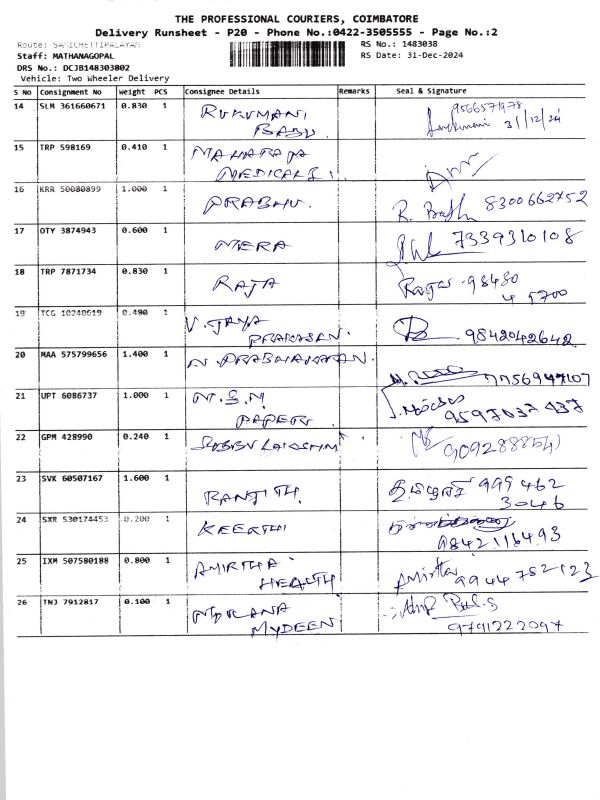 THE PROFESSIONAL COURIERS, COIMBATORE
Delivery Runsheet - P20 - Phone No.:0422-3505555 - Page No.:2
Route: SANICHETTIPALAYAM RS No.: 1483038
Staff: MATHANAGOPAL RS Date: 31-Dec-2024
DRS No.: DCJB148303802
Vehicle: Two Wheeler Delivery
S No Consignment No Weight PCS Consignee Details Remarks Seal & Signature
14 SLM 361660671 0.830 1 RUKUMANI
BABU 31/12/24
15 TRP 598169 0.410 1 MAHARAJA
MEDICAL
16 KRR 50080899 1.000 1 PRABHU. 8300662752
17 OTY 3874943 0.600 1 MERA 7339310108
18 TRP 7871734 0.830 1 RAJA
19 TCG 10240619 0.480 1 V. JAYA
PRAKASAN. 9842042642
20 MAA 575799656 1.400 1 N. PRABHAKARAN. 7756947107
21 UPT 6086737 1.000 1 M.S.M
PAPER 9597037437
22 GPM 428990 0.240 1 SUBBU LAKSHMI
23 SVK 60507167 1.600 1 RANJITH. 999 462
3046
24 SXR 530174453 0.200 1 KEERTHI 9842116493
25 IXM 507580188 0.800 1 AMIRTHA
HEALTH Amirtha 9944752123
26 TNJ 7912817 0.100 1
MYDEEN 9791222097